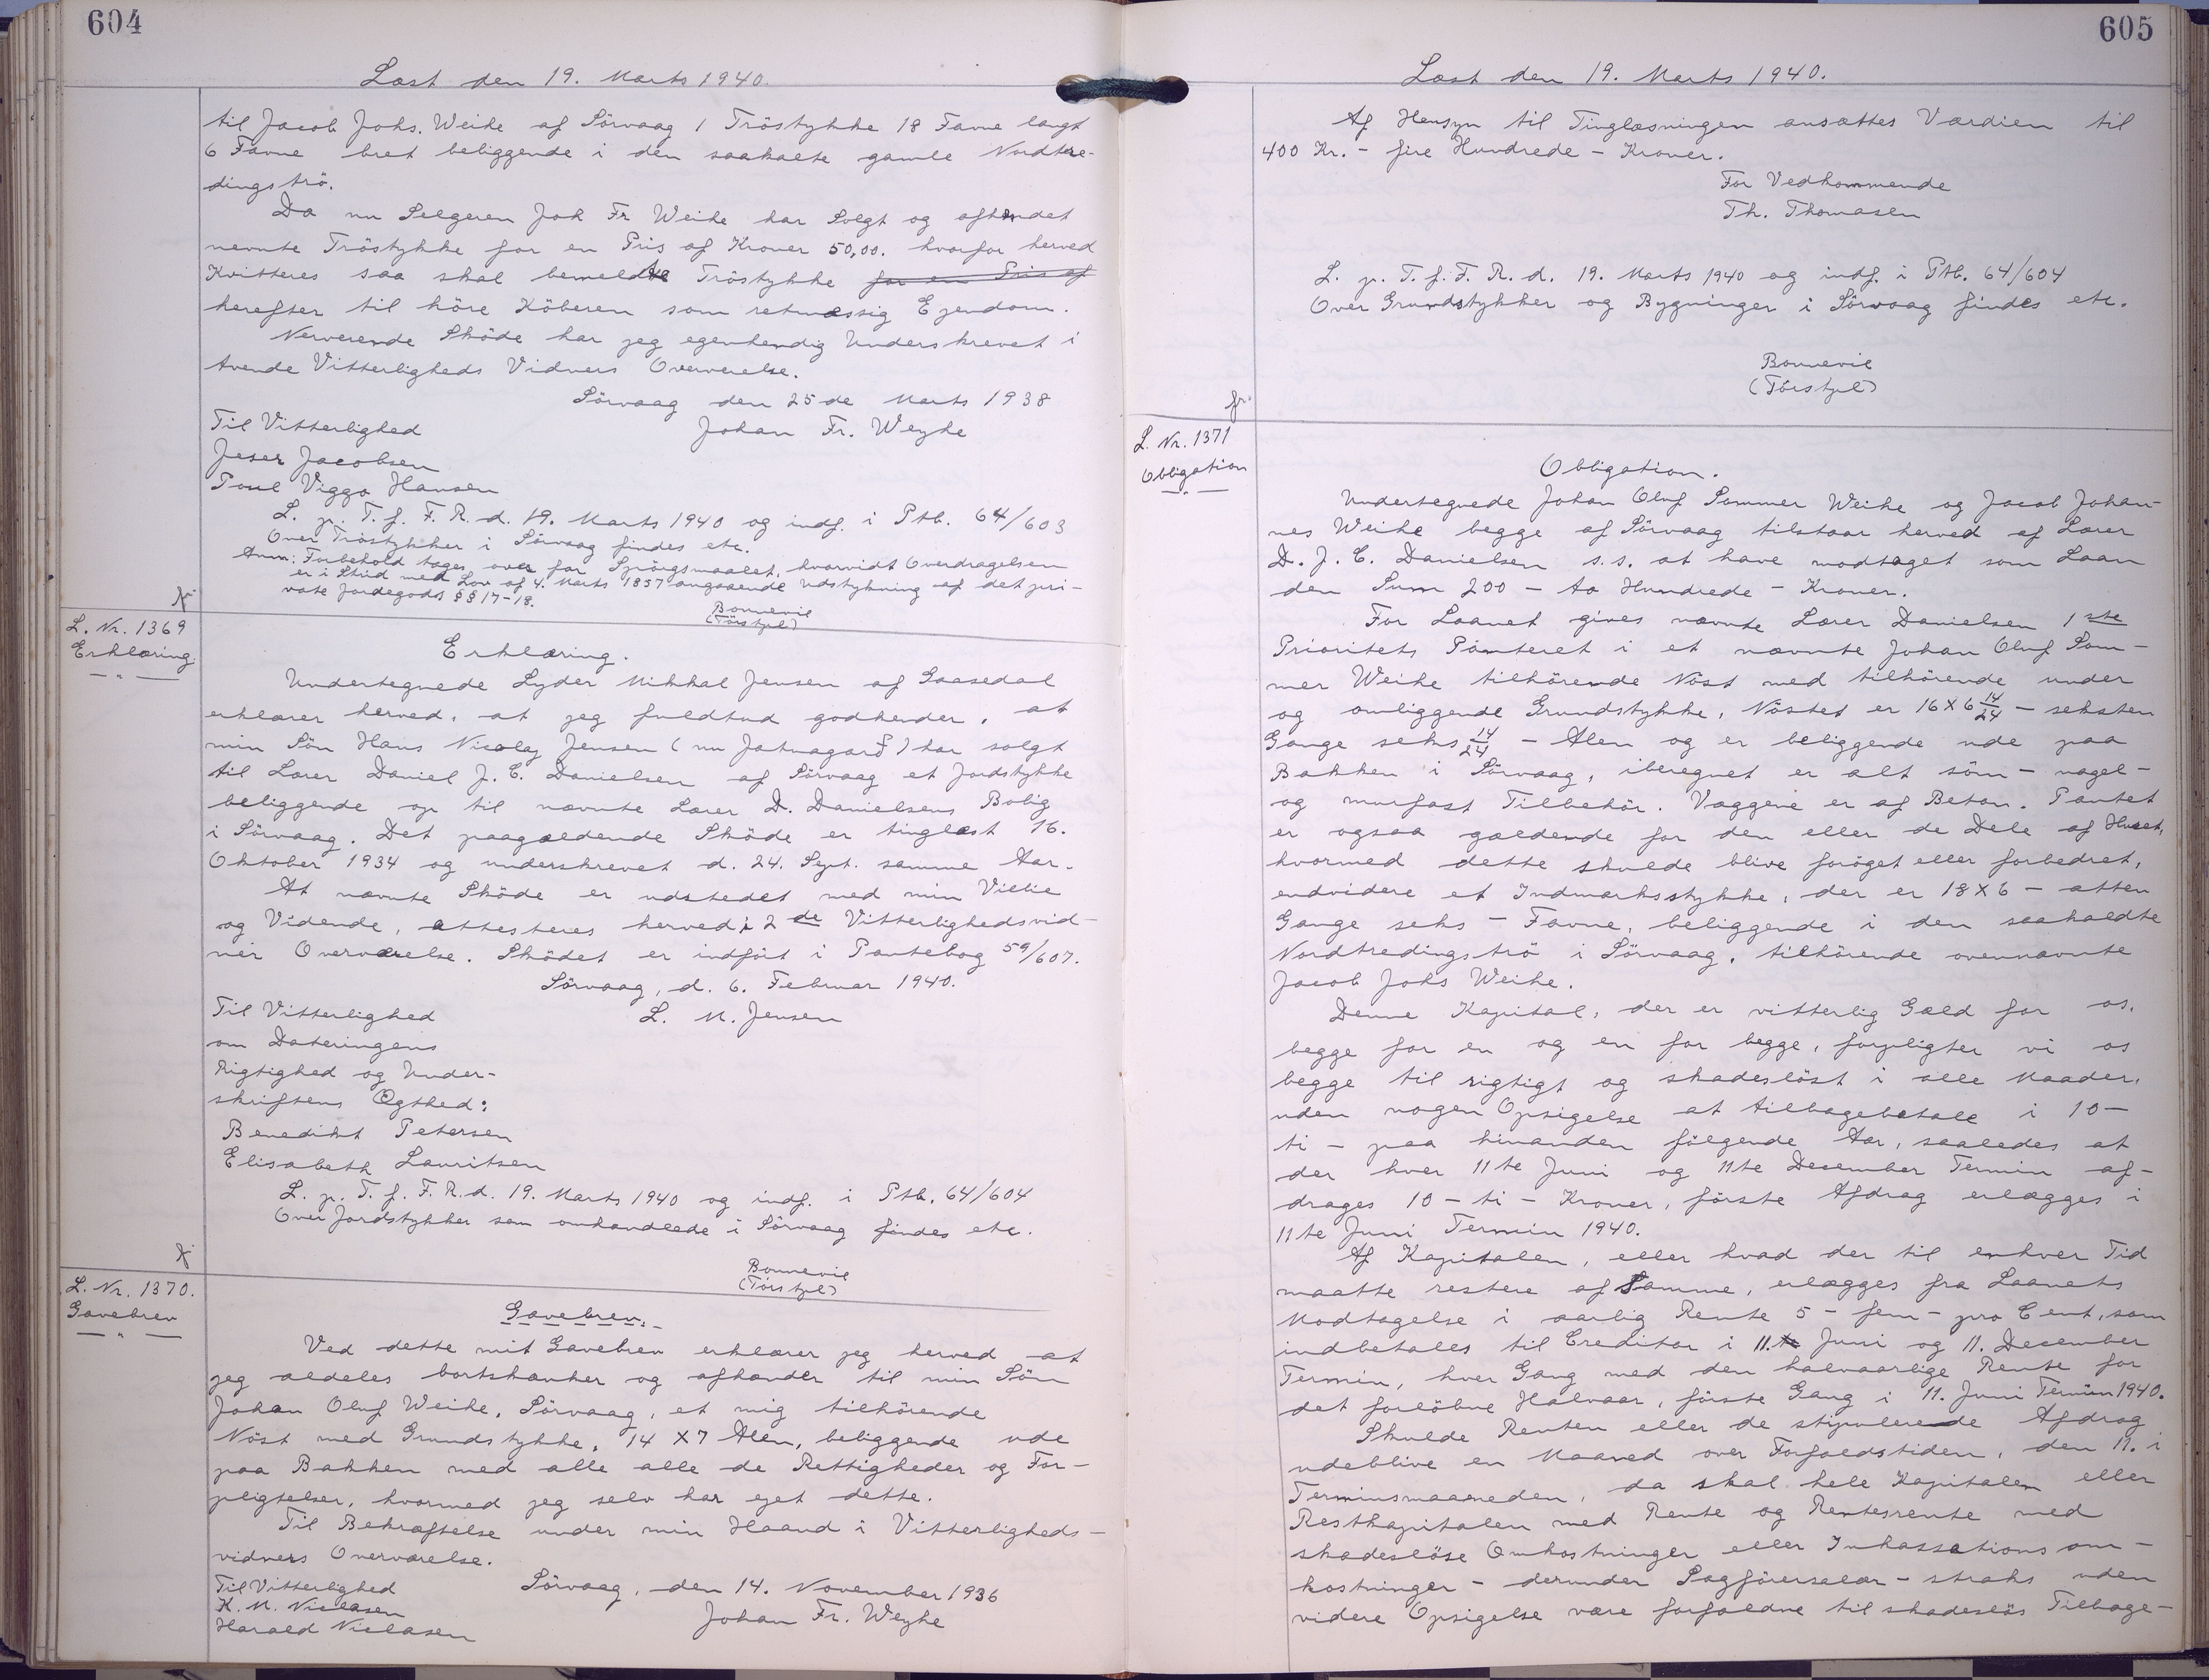 604
Læst den 19. Marts 1940.
til Jacob Johs. Weihe af Sörvaag 1 Tröstykke 18 Favne langt
6 Favne bret beliggende i den saakalte gamle Nordtre-
dingströ.
Da nu Selgeren Joh Fr Weihe har Solgt og afhendet
nevnte Tröstykke for en Pris af Kroner 50,00. hvorfor herved
Kvitteres saa skal bemeldte Tröstykke for en Pris af
herefter til höre Köberen som retmæssig Ejendom.
Nerverende Sköde har jeg egenhendig Underskrevet i
tvende Vitterligheds Vidners Oververelse.
Sörvaag den 25de Marts 1938
Til Vitterlighed
Johan Fr. Weyhe
Jeser Jacobsen
Poul Viggo Hansen
L. p. T. f. F. R. d. 19. Marts 1940 og indf. i Ptb. 64/603
Over Tröstykker i Sörvaag findes etc.
Anm: Forbehold tages over for Spörgsmaalet, hvorvidt Overdragelsen
er i Strid med Lov af 4. Marts 1857 angaaende Udstykning af det pri-
vate Jordegods §§ 17-18.
Bonnevie
(Törstpl)
fr.
L. Nr. 1369
Erklæring.
Erklæring.
Undertegnede Lyder Mikkal Jensen af Gaasedal
erklærer herved, at jeg fuldtud godkender, at
min Sön Hans Nicolaj Jensen (nu Jatnagard) har solgt
til Lærer Daniel J. C. Danielsen af Sörvaag et Jordstykke
beliggende op til nævnte Lærer D. Danielsens Bolig
i Sörvaag. Det paagældende Sköde er tinglæst 16.
Oktober 1934 og underskrevet d. 24. Sept. samme Aar.
At nævnte Sköde er udstedet med min Villie
og Vidende, attesteres herved i 2 de Vitterlighedsvid-
ner Overværelse. Sködet er indfört i Pantebog 59/607.
Sörvaag, d. 6. Februar 1940.
Til Vitterlighed
L. M. Jensen
om Dateringens
Rigtighed og Under-
skriftens Ægthed:
Benedikt Petersen
Elisabeth Lauritsen
L. p. T. f. F. R. d. 19. Marts 1940 og indf. i Ptb. 64/604
Over Jordstykker som omhandlede i Sörvaag findes etc.
Bonnevie
(Törstpl)
fr.
L. Nr. 1370.
Gavebrev
Gavebrev.
Ved dette mit Gavebrev erklærer jeg herved at
jeg aldeles bortskænker og afhænder til min Sön
Johan Oluf Weihe, Sörvaag, et mig tilhörende
Nöst med Grundstykke, 14 X 7 Alen, beliggende ude
paa Bakken med alle alle de Rettigheder og For-
pligtelser, hvormed jeg selv har ejet dette.
Til Bekræftelse under min Haand i Vitterligheds-
vidners Overværelse.
Til Vitterlighed
Sörvaag, den 14. November 1936
K. M. Niclasen
Johan Fr. Weyhe
Harald Niclasen
605
Læst den 19. Marts 1940.
Af Hensyn til Tinglæsningen ansættes Værdien til
400 Kr. - fire Hundrede - Kroner.
For Vedkommende
Th. Thomasen
L. p. T. f. F. R. d. 19. Marts 1940 og indf. i Ptb. 64/604
Over Grundstykker og Bygninger i Sörvaag findes etc.
Bonnevie
(Törstpl)
fr.
L. Nr. 1371
Obligation
Obligation.
Undertegnede Johan Oluf Sommer Weihe og Jacob Johan-
nes Weihe begge af Sörvaag tilstaar herved af Lærer
D. J. C. Danielsen s.s. at have modtaget som Laan
den Sum 200 - to Hundrede - Kroner.
For Laanet gives nævnte Lærer Danielsen 1 ste
Prioritets Panteret i et nævnte Johan Oluf Som-
mer Weihe tilhörende Nöst med tilhörende under
og omliggende Grundstykke, Nöstet er 16 X 6 14/24 - seksten
Gange seks 14/24 - Alen og er beliggende ude paa
Bakken i Sörvaag, iberegnet er alt söm - nagel-
og murfast Tilbehör. Væggene er af Beton. Pantet
er ogsaa gældende for den eller de Dele af Huset,
hvormed dette skulde blive foröget eller forbedret,
endvidere et Indmarksstykke, der er 18 X 6 - atten
Gange seks - Favne, beliggende i den saakaldte
Nordtredingströ i Sörvaag, tilhörende ovennævnte
Jacob Johs Weihe.
Denne Kapital, der er vitterlig Gæld for os,
begge for en og en for begge, forpligter vi os
begge til rigtigt og skadeslöst i alle Maader,
uden nogen Opsigelse at tilbagebetale i 10-
ti - paa hinanden fölgende Aar, saaledes at
der hver 11te Juni og 11te December Termin af-
drages 10 - ti - Kroner, förste Afdrag erlægges i
11te Juni Termin 1940.
Af Kapitalen, eller hvad der til enhver Tid
maatte restere af Samme, erlægges fra Laanets
Modtagelse i aarlig Rente 5 - fem - pro Cent, som
indbetales til Creditor i 11.te Juni og 11. December
Termin, hver Gang med den halvaarlige Rente for
det forlöbne Halvaar, förste Gang i 11. Juni Termin 1940.
Skulde Renten eller de stipulerede Afdrag
udeblive en Maaned over Forfaldstiden, den 11. i
Terminsmaaneden, da skal hele Kapitalen eller
Restkapitalen med Rente og Rentesrente med
skadeslöse Omkostninger eller Inkassations om-
kostninger - derunder Sagförersalær - straks uden
videre Opsigelse være forfaldne til skadeslös Tilbage-